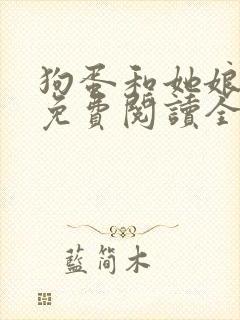 狗蛋和她娘
免費閱讀全
藍簡木